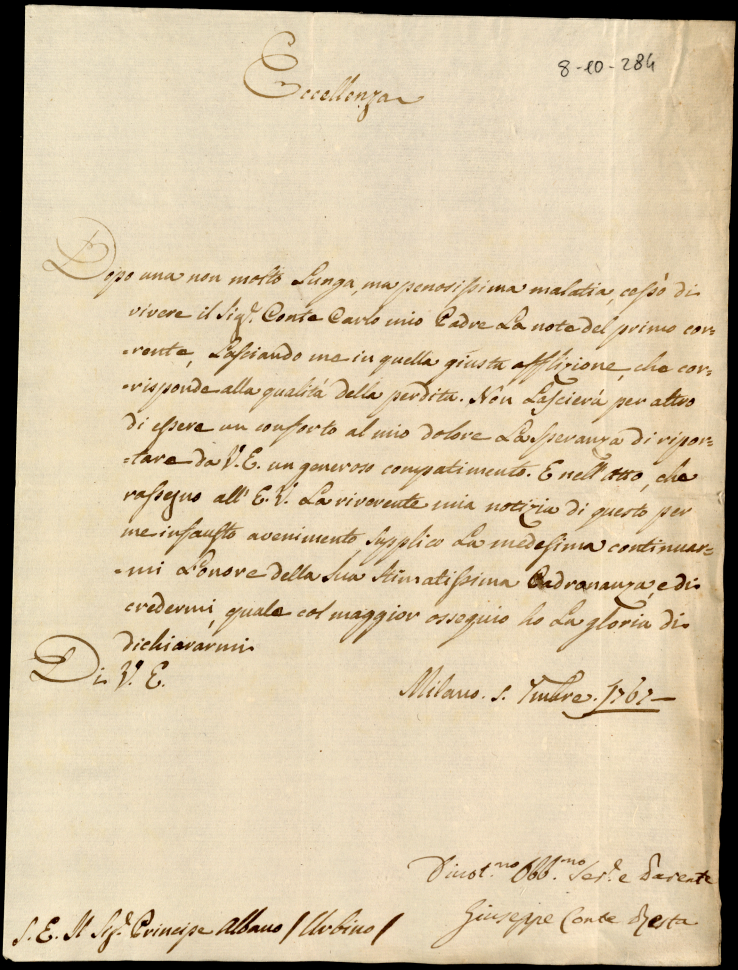 8-10-284
Eccellenza
Dopo una non molto lunga, ma penosissima malatia, cessò di
vivere il Sig.r Conte Carlo mio Padre la note del primo cor=
=rente, lasciando me in quella giusta afflizione, che cor=
=risponde alla qualità della perdita. Non lascierà per altro
di essere un conforto al mio dolore la speranza di ripor=
=tare da V.E. un generoso compatimento. E nell'atto, che
rassegno all'E.V. la riverente mia notizia di questo per
me infausto avenimento supplico la medesima continuar=
=mi l'onore della sua stimatissima Padronanza, e di
credermi, quale col maggior ossequio ho la gloria di
dichiararmi
Di V.E.
Milano. 5. 7mbre. 1767
Divot.mo Obb.mo Ser.e e Parente
Giuseppe Conte Resta
S.E. Il Sig.r Principe Albano / Urbino /